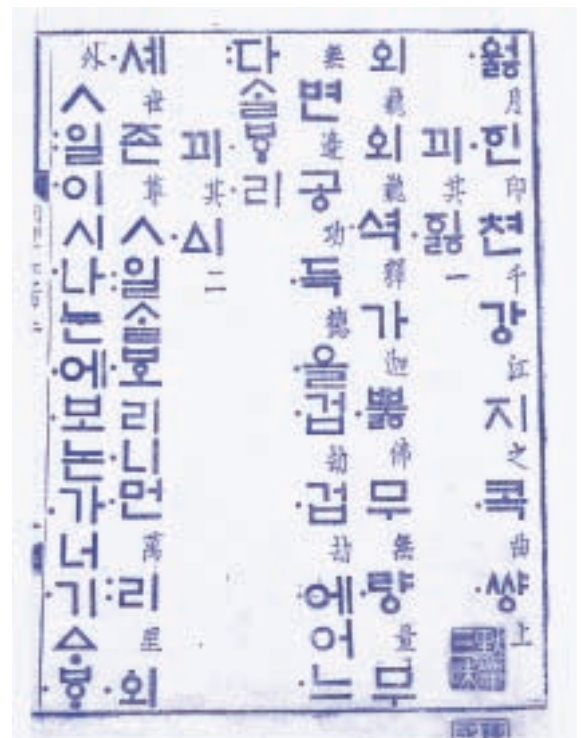 ·ᅌᅯᇙ月·ᅙᅵᆫ印쳔千강江지之·콕曲·썅上
끼其·ᅙᅵᇙ一
외巍외巍·셕釋가迦·뿛佛무無·량量무
無변邊공功·득德·을·겁劫·겁劫·에어느
:다ᄉᆞᆯᄫᆞ·리
끼其·ᅀᅵ二
·셰世존尊ㅅ:일ᄉᆞᆯᄫᅩ리·니·먼萬:리里·외
外ㅅ:일·이시·나·눈·에보·논·가너·기ᅀᆞ·ᄫᆞ